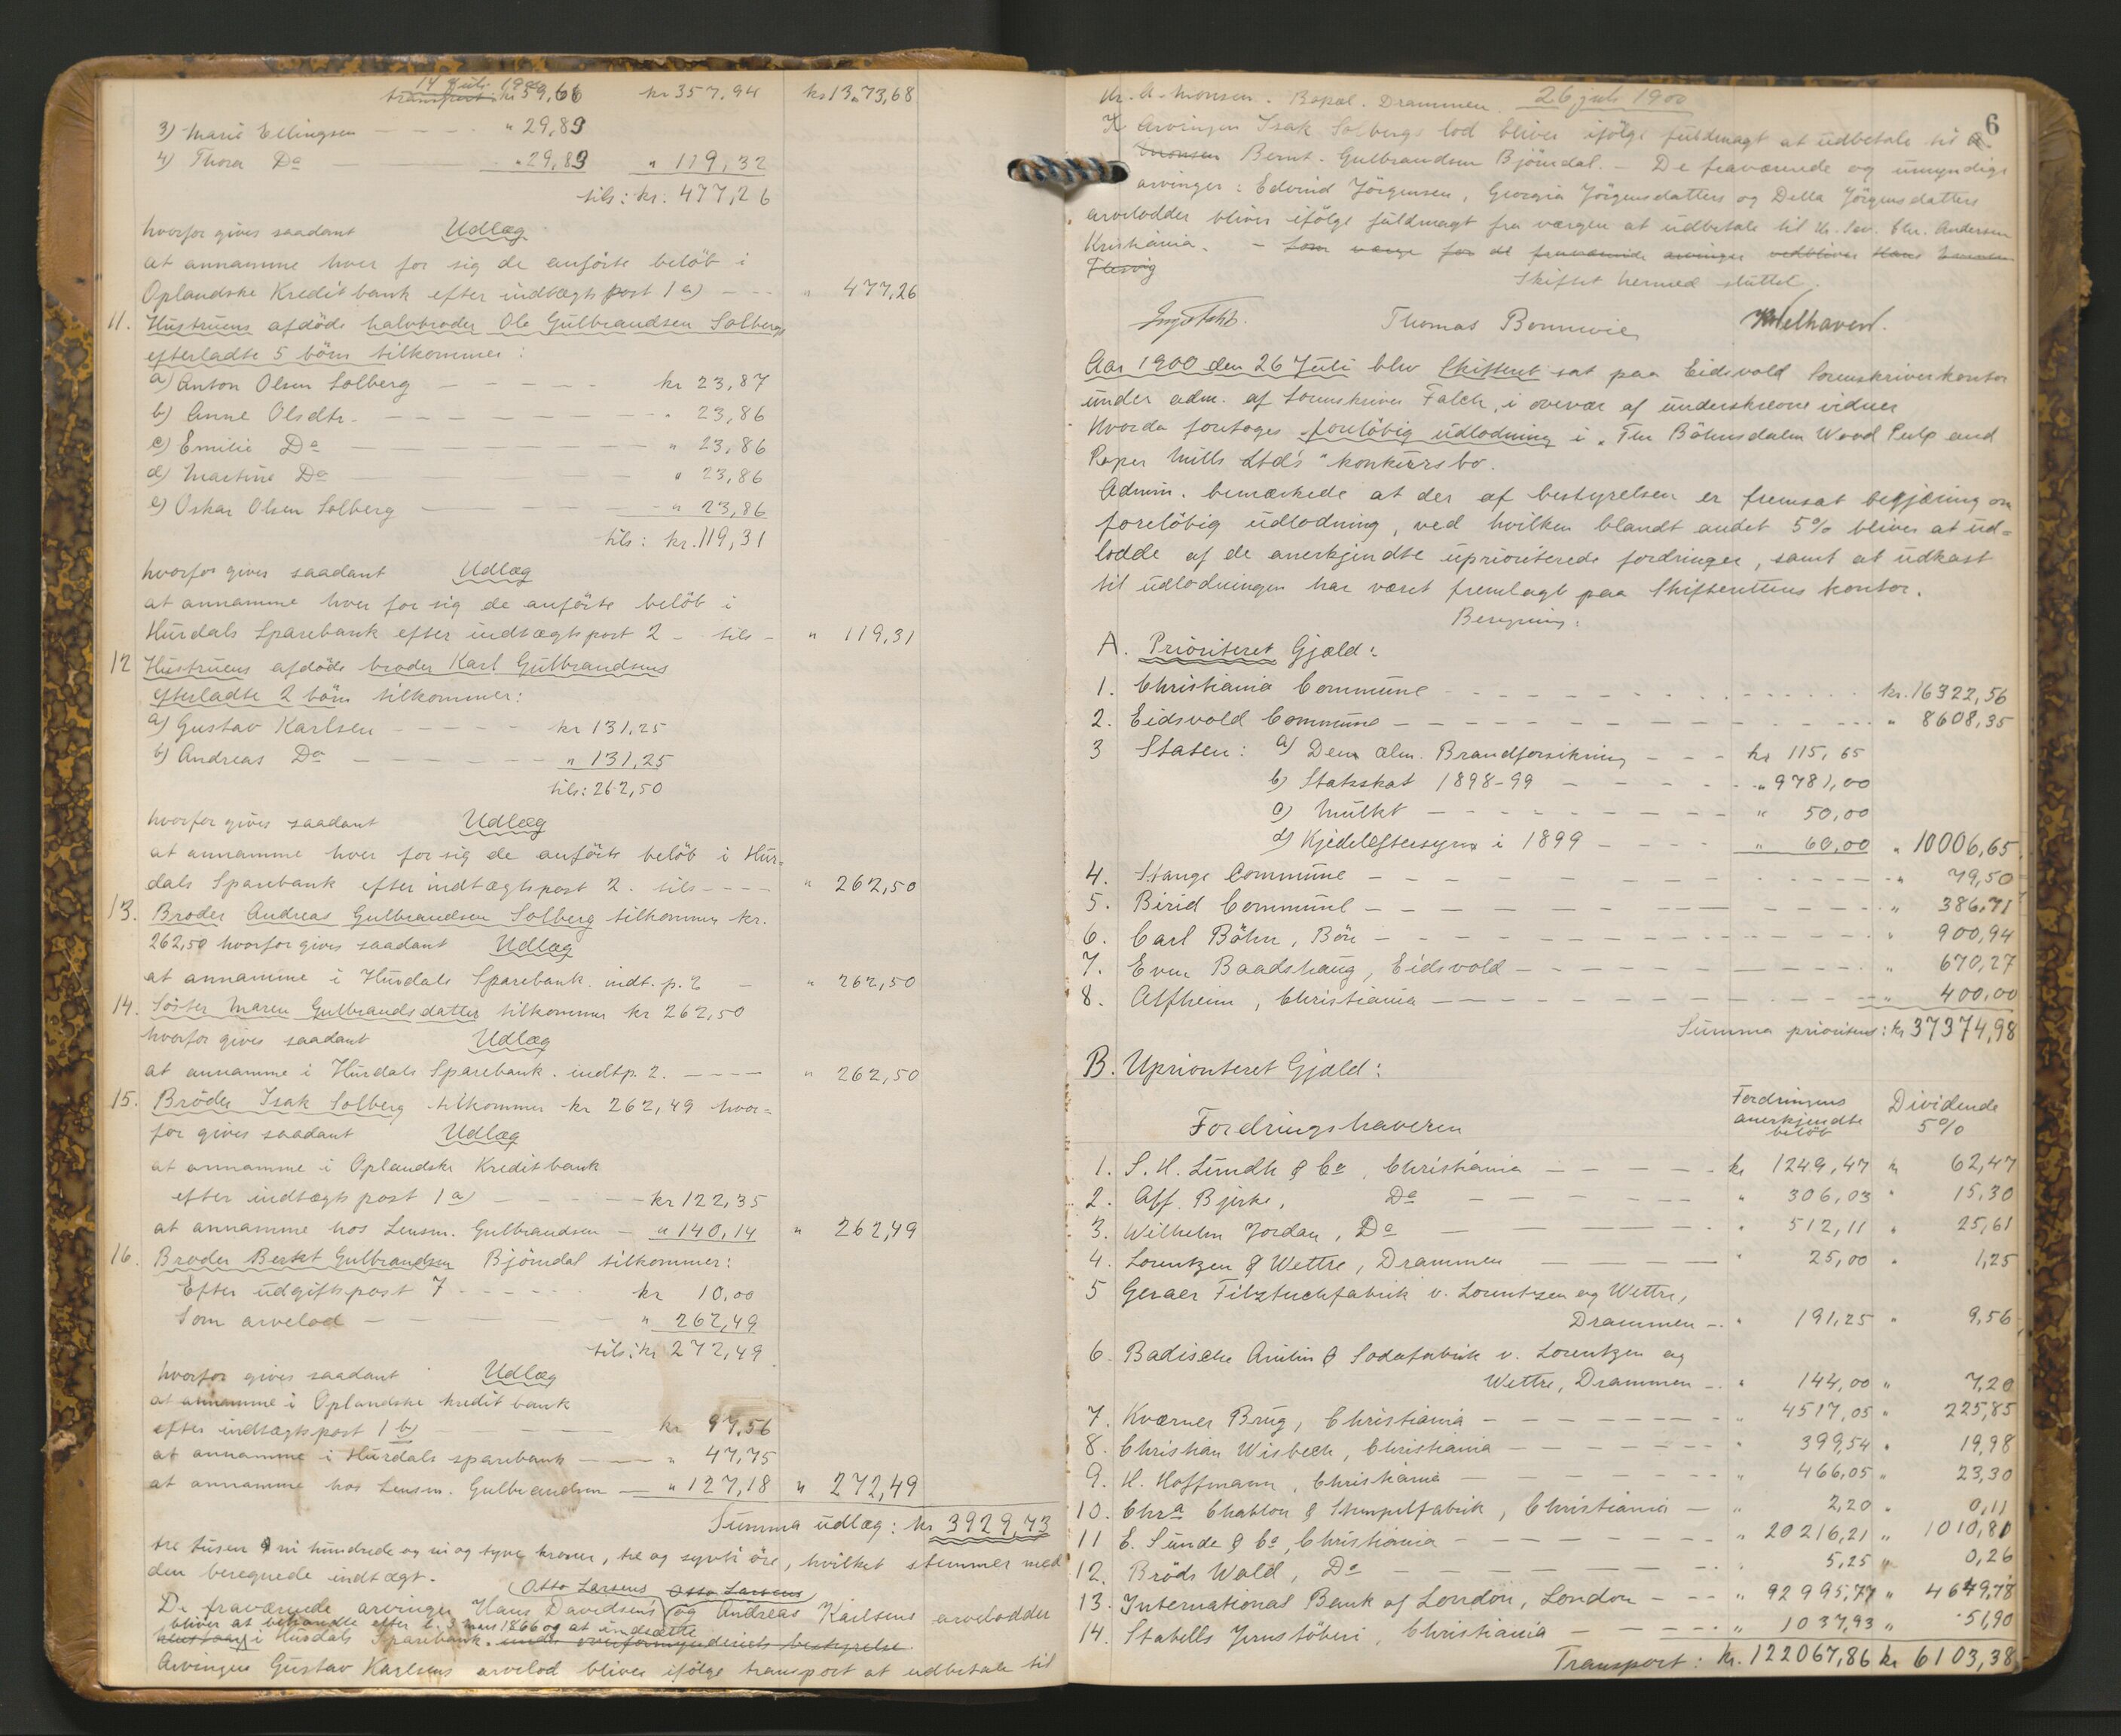 14 Juli 1900
transport: kr 59,66 kr 357,94 kr 1373,68
3) Marie Ellingsen — — — " 29,83
4) Thora Do — — " 29,83 " 119,32
tils: kr. 477,26
hvorfor gives saadant Udlæg
at annamme hver for sig de anførte beløb i
Oplandske Kreditbank efter indtægtspost 1 a) — — " 477,26
11. Hustruens afdøde halvbroder Ole Gulbrandsen Solbergs
efterladte 5 børn tilkommer:
a) Anton Olsen Solberg — — — kr 23,87
b) Anne Olsdtr. — — — " 23,86
c) Emilie Do — — — " 23,86
d) Martine Do — — — " 23,86
e) Oskar Olsen Solberg — — — " 23,86
tils: kr. 119,31
hvorfor gives saadant Udlæg
at annamme hver for sig de anførte beløb i
Hurdals Sparebank efter indtægtspost 2 – tils – " 119,31
12 Hustruens afdøde broder Karl Gulbrandsens
efterladte 2 børn tilkommer:
a) Gustav Karlsen — — — kr 131,25
b) Andreas Do — — — " 131,25
tils: 262,50
hvorfor gives saadant Udlæg
at annamme hver for sig de anførte beløb i Hur-
dals Sparebank efter indtægtspost 2. tils — — " 262,50
13. Broder Andreas Gulbrandsen Solberg tilkommer kr.
262,50 hvorfor gives saadant Udlæg
at annamme i Hurdals Sparebank. indt. p. 2 — " 262,50
14. Søster Maren Gulbrandsdatter tilkommer kr 262,50
hvorfor gives saadant Udlæg
at annamme i Hurdals Sparebank. indtp. 2. — — " 262,50
15. Broder Isak Solberg tilkommer kr 262,49 hvor-
for gives saadant Udlæg
at annamme i Oplandske Kreditbank
efter indtægtspost 1 a) — — — kr 122,35
at annamme hos Lensm. Gulbrandsen — " 140,14 " 262,49
16. Broder Berkt Gulbrandsen Bjørndal tilkommer:
Efter udgiftspost 7 — — — kr 10,00
Som arvelod — — — " 262,49
tils: kr 272,49
hvorfor gives saadant Udlæg
at annamme i Oplandske kredit bank
efter indtægtspost 1 b) — — — kr 97,56
at annamme i Hurdals sparebank — — " 47,75
at annamme hos Lensm. Gulbrandsen — " 127,18 " 272,49
Summa udlæg: kr 3929,73
tre tusen ni hundrede og ni og tyve kroner, tre og sytti øre, hvilket stemmer med
den beregnede indtægt.
(Otto Larsens Otto Larsens)
De fraværende arvinger Hans Davidsens og Andreas Karlsens arvelodder
bliver at behandle efter l. 3 mars 1866 og at indsætte
i Hurdals Sparebank. under overformynderiets bestyrelse.
Arvingen Gustav Karlsens arvelod bliver ifølge transport at udbetale til
6
Hr. A. Monsen. Bopæl. Drammen. 26 juli 1900
Arvingen Isak Solbergs lod bliver ifølge fuldmagt at udbetale til A.
Monsen Bernt. Gulbrandsen Bjørndal. — De fraværende og umyndige
arvinger: Edvind Jørgensen, Georgia Jørgensdatters og Della Jørgensdatters
arvelodder bliver ifølge fuldmagt fra værgen at udbetale til Hr. Sev. Chr. Andersen
Kristiania. — Som værge for de fraværende arvinger vedbliver Hans
Flesvig
Skiftet hermed sluttet.
Thomas Bonnevie Welhaven.
Aar 1900 den 26 Juli blev Skifteret sat paa Eidsvold Sorenskriverkontor
under adm. af Sorenskriver Falch, i overvær af underskrevne vidner
Hvorda foretoges foreløbig udlodning i „The Bøhnsdalen Wood Pulp and
Paper Mills Ltd's" konkursbo.
Admin. bemærkede at der af bestyrelsen er fremsat begjæring om
foreløbig udlodning, ved hvilken blandt andet 5% bliver at ud-
lodde af de anerkjendte uprioriterede fordringer, samt at udkast
til udlodningen har været fremlagt paa Skifterettens kontor.
Beregning:
A. Prioriteret Gjæld:
1. Christiania Commune — — — kr. 16322,56
2. Eidsvold Commune — — — " 8608,35
3 Staten: a) Den alm. Brandforsikring — — — kr 115,65
b) Statsskat 1898-99 — — — " 9781,00
c) Mulkt — — — " 50,00
d) Kjedeleftersyn i 1899 — — — " 60,00 " 10006,65
4. Stange Commune — — — " 79,50
5. Birid Commune — — — " 386,71
6. Carl Bøhn, Bøn — — — " 900,94
7. Even Baadshaug, Eidsvold — — — " 670,27
8. Alfheim, Christiania — — — " 400,00
Summa prioritert: kr 37374,98
B. Uprioriteret Gjæld:
Fordringshaveren Fordringens anerkjendte beløb Dividende 5%
1. S. H. Lundh & Co, Christiania — — — kr 1249,47 kr 62,47
2. Alf. Bjerke, Do — — — " 306,03 " 15,30
3. Wilhelm Jordan, Do — — — " 512,11 " 25,61
4. Lorentzen & Wettre, Drammen — — — " 25,00 " 1,25
5 Geraer Filztuchfabrik v. Lorentzen og Wettre,
Drammen — " 191,25 " 9,56
6. Badische Anilin & Sodafabrik v. Lorentzen og
Wettre, Drammen — " 144,00 " 7,20
7. Kværner Brug, Christiania — — — " 4517,05 " 225,85
8. Christian Wisbech, Christiania — — — " 399,54 " 19,98
9. H. Hoffmann, Christiania — — — " 466,05 " 23,30
10. Chra Chablon & Stempelfabrik, Christiania — " 2,20 " 0,11
11 E. Sunde & Co, Christiania — — — " 20216,21 " 1010,81
12. Brøds Wald, Do — — — " 5,25 " 0,26
13. International Bank of London, London — — " 92995,77 " 4649,78
14. Stabells Jernstøberi, Christiania — — — " 1037,93 " 51,90
Transport: kr. 122067,86 kr 6103,38